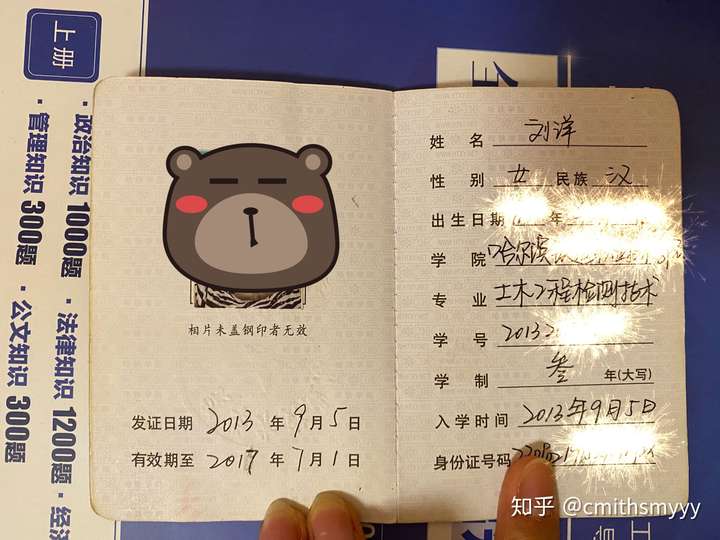 上册
· 政治知识 1000题 · 法律知识 1200题 · 经济
· 管理知识 300题 · 公文知识 300题
相片未盖钢印者无效
发证日期 2013 年 9 月 5 日
有效期至 2017 年 7 月 1 日
姓 名 刘洋
性 别 女 民族 汉
出生日期 年
学 院 哈尔滨
专 业 土木工程检测技术
学 号 2013
学 制 叁 年(大写)
入学时间 2013年9月5日
身份证号码
知乎 @cmithsmyyy